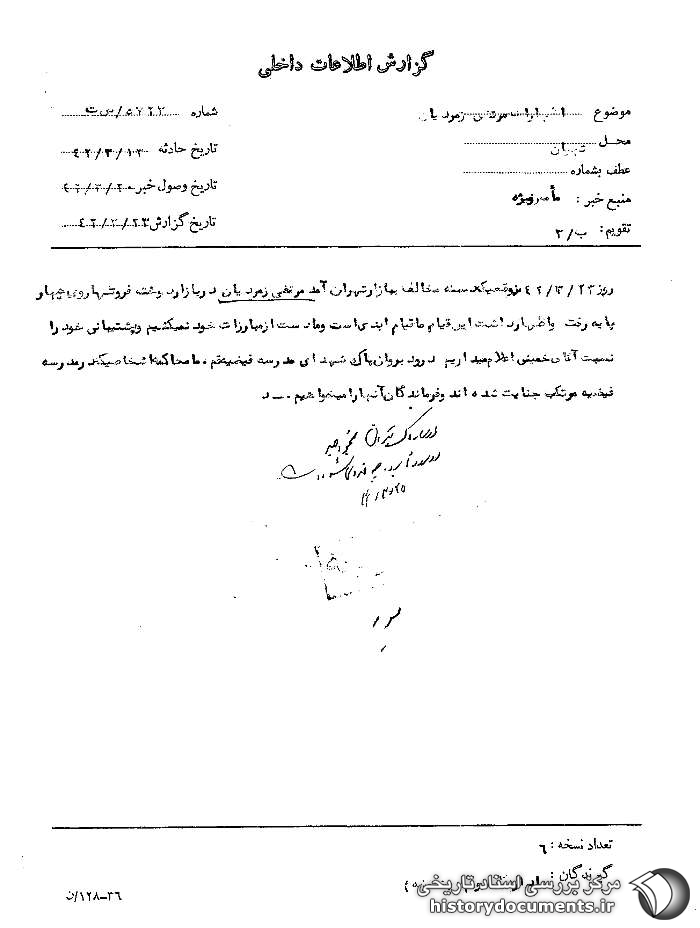 گزارش اطلاعات داخلی
موضوع اظهارات مرتضی زمردیان
شماره ۵۷۲۲/س ت
محل تهران
تاریخ حادثه ۴۲/۳/۱۳
عطف بشماره
تاریخ وصول خبر ۴۲/۳/۲۰
منبع خبر : مأمور ویژه
تاریخ گزارش ۴۲/۳/۲۳
تقویم : ب/۲
روز ۴۲/۳/۱۳ موقعیکه دسته مخالف ببازار تهران آمد مرتضی زمردیان در بازار دوخته فروشها روی چهار
پایه رفت و اظهار داشت این قیام ما قیام ابدی است و ما دست از مبارزات خود نمیکشیم و پشتیبانی خود را
نسبت آقای خمینی اعلام میداریم درود بروان پاک شهدای مدرسه فیضیه قم ، ما محاکمه اشخاصیکه در مدرسه
فیضیه مرتکب جنایت شده اند و فرماندگان آنها را میخواهیم . ـ د
تعداد نسخه : ۶
گیرندگان :
۳۶-۱۲۸/ن
مرکز بررسی اسناد تاریخی
historydocuments.ir